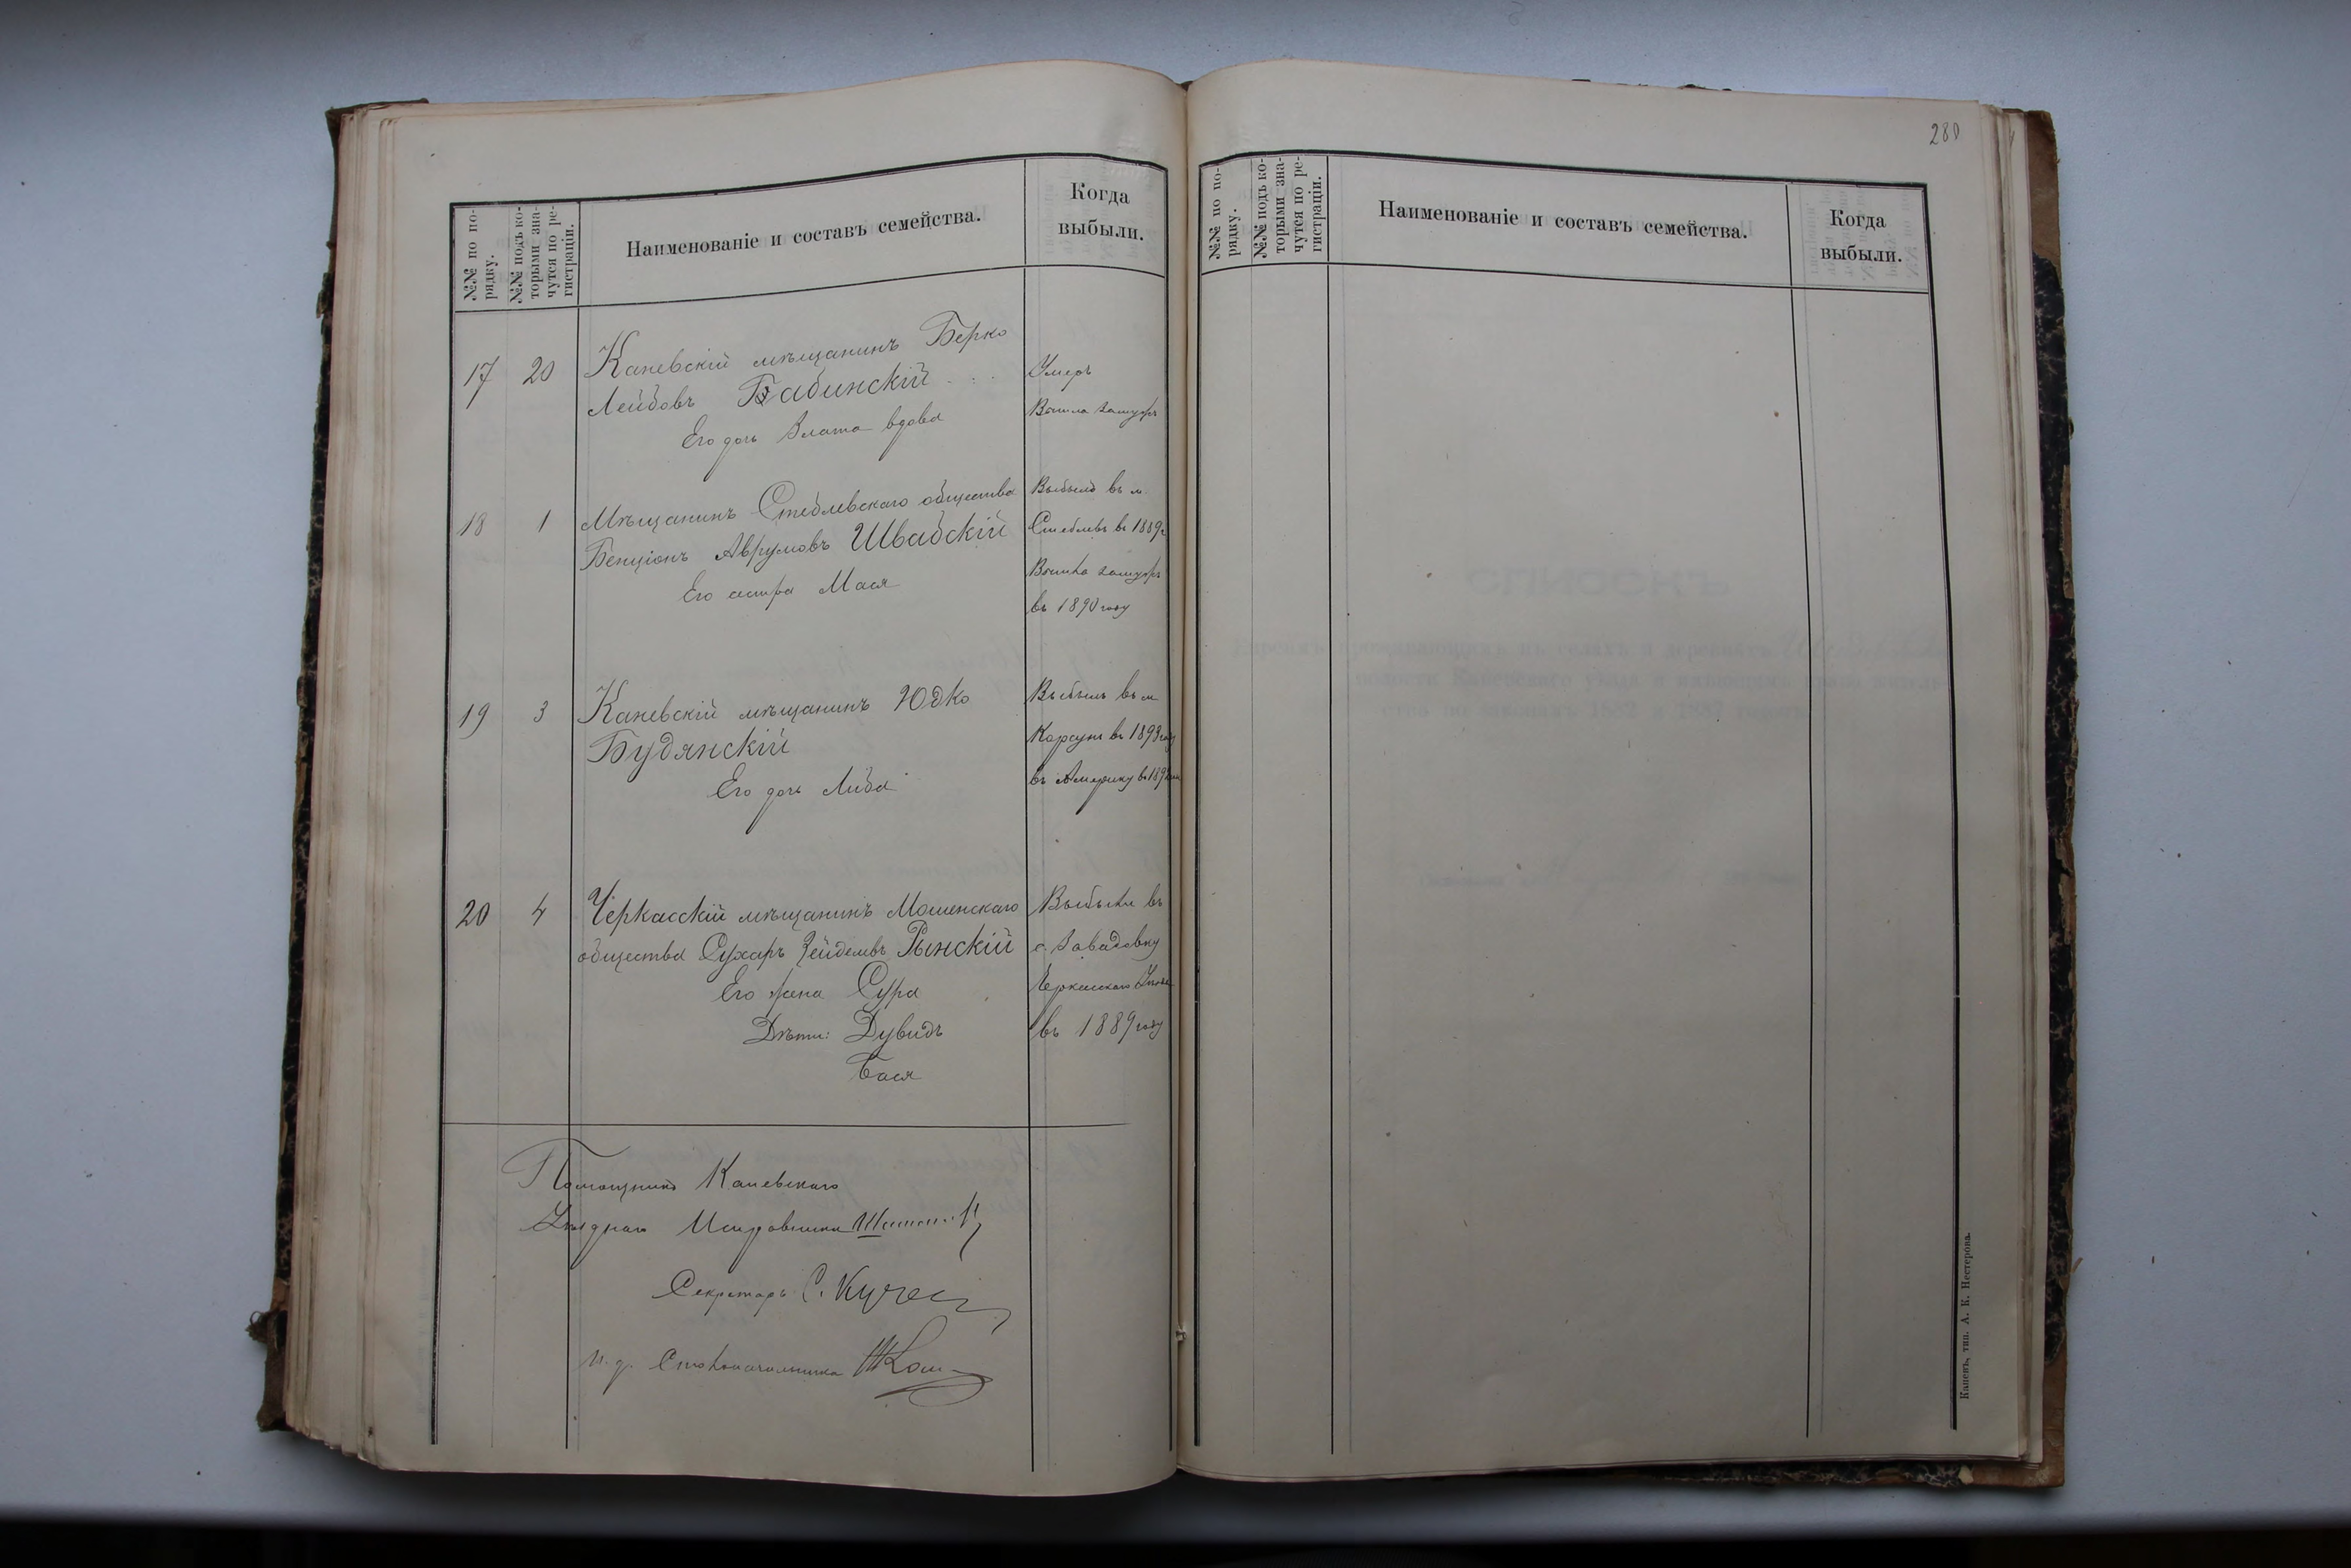 №№ по по-
рядку.
№№ подъ ко-
торыми зна-
чутся по ре-
гистраціи.
Наименованіе и составъ семейства.
Когда
выбыли.
17 20 Каневскій мѣщанинъ Берко
Лейбовъ Бабинскій
Умеръ
Его дочь Злата вдова
Вышла замужъ
18 1 Мѣщанинъ Стеблевскаго общества
Бенціонъ Аврумовъ Швабскій
Его сестра Мася
Выбылъ въ м.
Стеблевъ въ 1889 г.
Вышла замужъ
въ 1890 году
19 3 Каневскій мѣщанинъ Юдко
Будянскій
Его дочь Либа
Выбылъ въ м.
Корсунь въ 1893 году
въ Америку въ
20 4 Черкасскій мѣщанинъ Мошенскаго
общества Сухаръ Зейделевъ Рынскій
Его жена Сура
Дѣти: Дувидъ
Бася
Выбыли въ
с. Завадовку
Черкасскаго Уѣзда
въ 1889 году
Помощникъ Каневскаго
Уѣзднаго Исправника
Секретарь С.
И. д. Столоначальника
280
№№ по по-
рядку.
№№ подъ ко-
торыми зна-
чутся по ре-
гистраціи.
Наименованіе и составъ семейства.
Когда
выбыли.
Каневъ, тип. А. К. Нестерова.